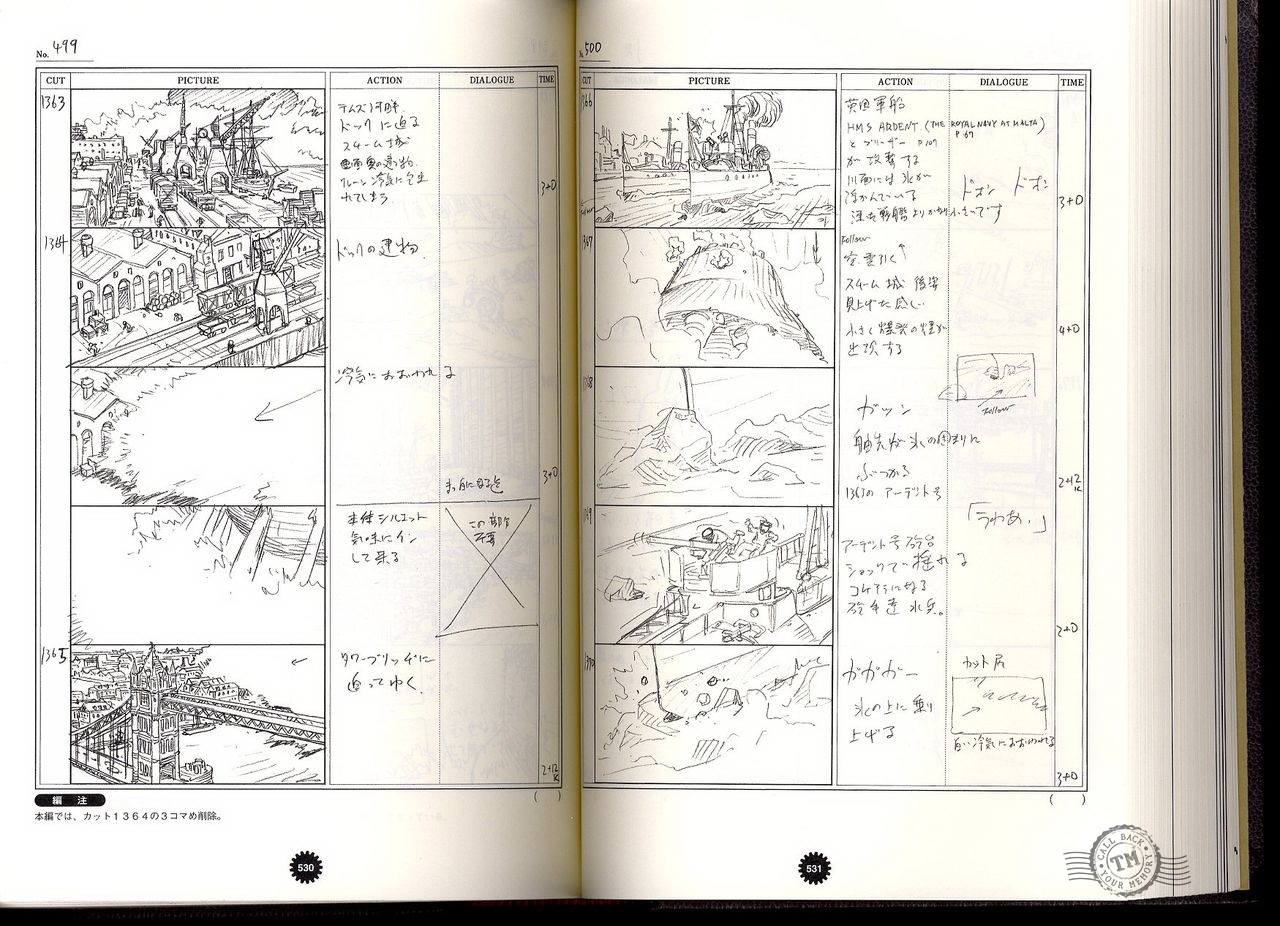 No. 499
CUT PICTURE ACTION DIALOGUE TIME
1363
テムズ河畔
ドックに迫る
スチーム城
画面奥の建物
クレーン冷気に包ま
れてしまう
3+0
1364
ドックの建物
冷気におおわれる
まっ白になる迄
3+0
本体シルエット
気味にイン
して来る
この部分
不要
1365
タワーブリッヂに
迫ってゆく
2+12
K
( )
編 注
本編では、カット1364の3コマめ削除。
530
500
CUT PICTURE ACTION DIALOGUE TIME
1366
英国軍船
HMS ARDENT (THE ROYAL NAVY AT MALTA)
P.67
P.107
が攻撃する
川面には氷が
浮かんでいる
ドオン ドオン
3+0
1367
Follow
スチーム城 後姿
見上げた感じ
小さく爆発の煙が
出現する
4+0
Follow
1368
ガツン
舳先が氷の固まりに
ぶつかる
1363の アーデント号
2+12
K
1369
「うわあ。」
アーデント号 砲台
ショックで揺れる
コケそうになる
砲手達 水兵。
2+0
1370
ガガガー
氷の上に乗り
上げる
カット尻
白い冷気におおわれてる
3+0
( )
531
CALL BACK
TM
YOUR MEMORY